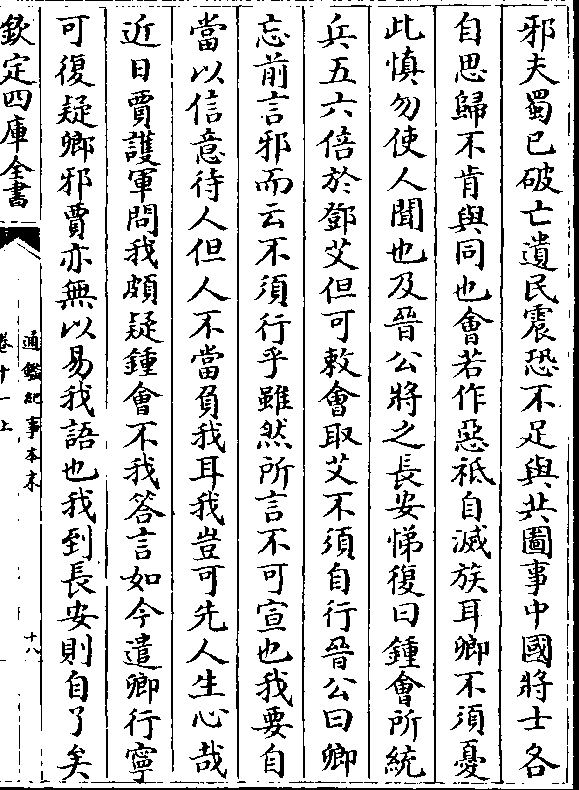 邪夫蜀已破亡遺民震恐不足與共圖事中國將士各
自思歸不肯與同也會若作惡祗自滅族耳卿不須憂
此慎勿使人聞也及晉公將之長安悌復曰鍾會所統
兵五六倍於鄧艾但可敕會取艾不須自行晉公曰卿
忘前言邪而云不須行乎雖然所言不可宣也我要自
當以信意待人但人不當負我耳我豈可先人生心哉
近日賈護軍問我頗疑鍾會不我答言如今遣卿行寧
可復疑卿邪賈亦無以易我語也我到長安則自了矣
欽定四庫全書
通鑑紀事本末
卷十一上
十八